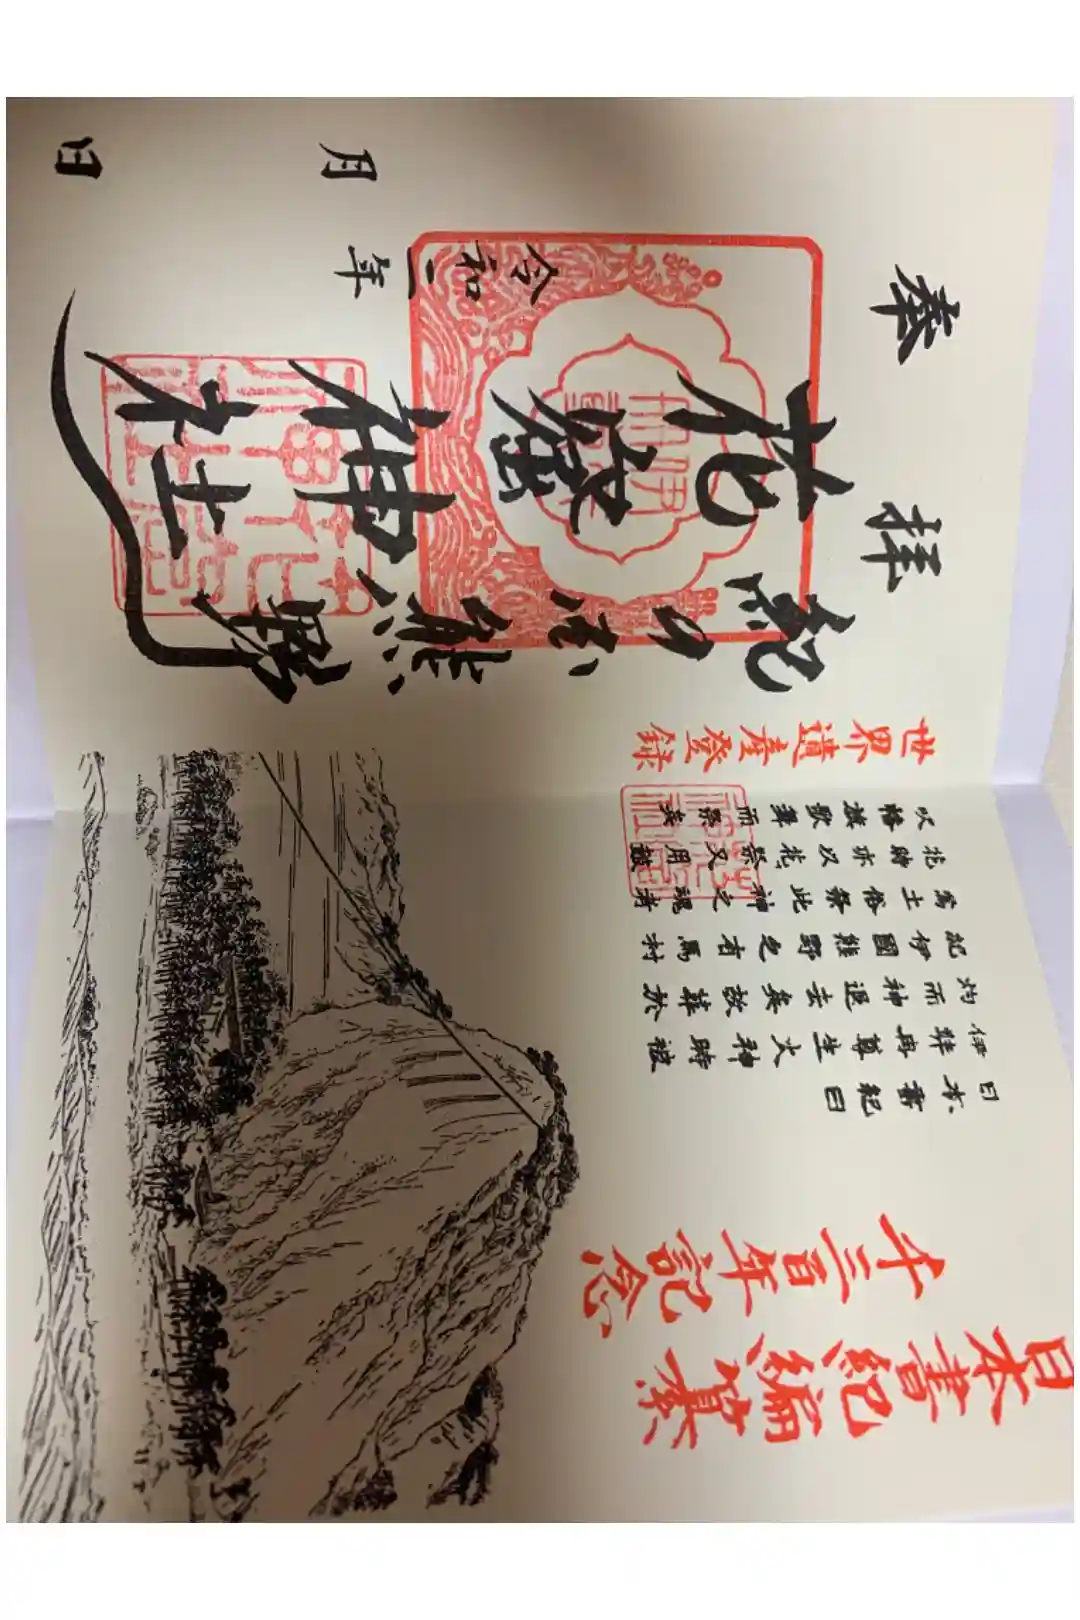 日本書紀編纂
千三百年記念
日本書紀曰
伊弉冉尊生火神時被
灼而神退去矣故葬於
紀伊國熊野之有馬村
焉土俗祭此神之魂者
花時亦以花祭又用鼓
吹幡旗歌舞而祭矣
世界遺產登録
奉拝
紀 熊野
花窟神社
令和二年
月
日